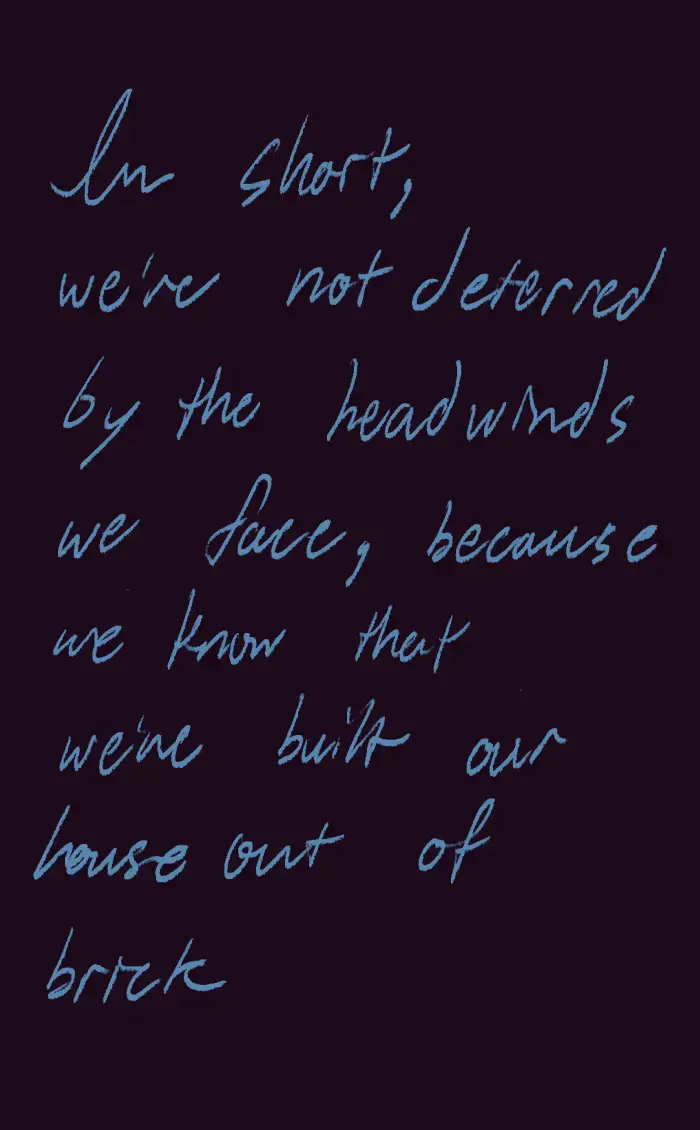 In short,
we're not deterred
by the headwinds
we face, because
we know that
we've built our
house out of
brick